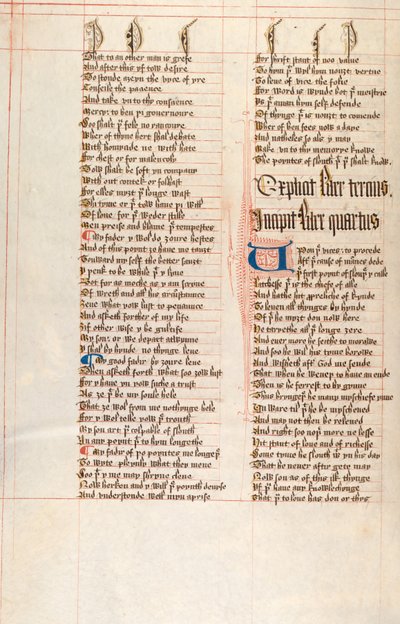 That to an other man is grefe
And after this yf tow desire
To stonde aȝeyn the vyce of yre
Conseile the pacence
And take vnto thy consience
Mercy to ben þi gouernoure
Soo shalt þu fele no rancoure
Wher of thyne hert shal debate
With homycide ne with hate
For chest or for malencoly
Tow shalt be soft yn company
With out contek or folhast
For elles myȝt þu longe wast
Thi tyme er þt tow haue þi will
Of loue for þe weder still
Men preise and blame þe tempestes
My fader y wol do ȝoure hestes
And of this poynt ȝe haue me taut
Touward my self the better sauȝt
Y þenk to be while þt y lyue
Bot for as moche as y am shryue
Of wreth and all his circustance
Ȝeue what yow list to penance
And asketh forther of my life
Ȝif other wise y be gultife
My sone or we depart alwynne
Y shal be hynde no thynge leue
My good fader by ȝoure leue
Then asketh forth what soo ȝow list
For y haue yn yow suche a trust
As ȝe þt be my soule hele
That ȝe wol from me nothynge hele
For y wol telle yow þe trouth
My son art þu culpable of slouth
In any poynt þt to hym longeth
My fadir of þo poyntes me longeþ
To wyte pleynly what they mene
Soo þt y me may shryue clene
Now herken and y will þe poyntȝ deuise
And vnderstonde well myn aprise
For shrift stant of noo value
To hym þt wyl hym noȝt vertue
To leue of vice the folie
For word is wynde bot þe meistrie
Is þt a man hym self defende
Of thynge þt is noȝt to comende
Wher of ben fewe now a daye
And natheles so as y may
Make vnto thy memorye knowe
The poyntes of slouth þt þu shalt know.
Explicit liber tercius.
Incipit liber quartus
Vpon þe vices to procede
Aft þe cause of mannes dede
Þe first poynt of slouþe y calle
Lachesse þt is the chefe of alle
And hathe his aprehence of kynde
To leuen all thynges by hynde
Of þt he myȝt don now here
He tarrethe all þe longe ȝere
And euer more he seithe to morowe
And soo he wil his tyme borowe
And wisheth aft God me sende
That when he wenyþ to haue an ende
Then is he ferrest to by gynne
Thus bryngeþ he many myschiefe ynne
Vn ware til þt he be myscheued
And may not then be releued
And right soo noþer more ne lesse
Hit stant of loue and of richesse
Come tyme he slouth it yn his day
That he neuer aftir gete may
Now son as of this ilk thynge
Yf þu haue any knowlechynge
That þu to loue has don or this